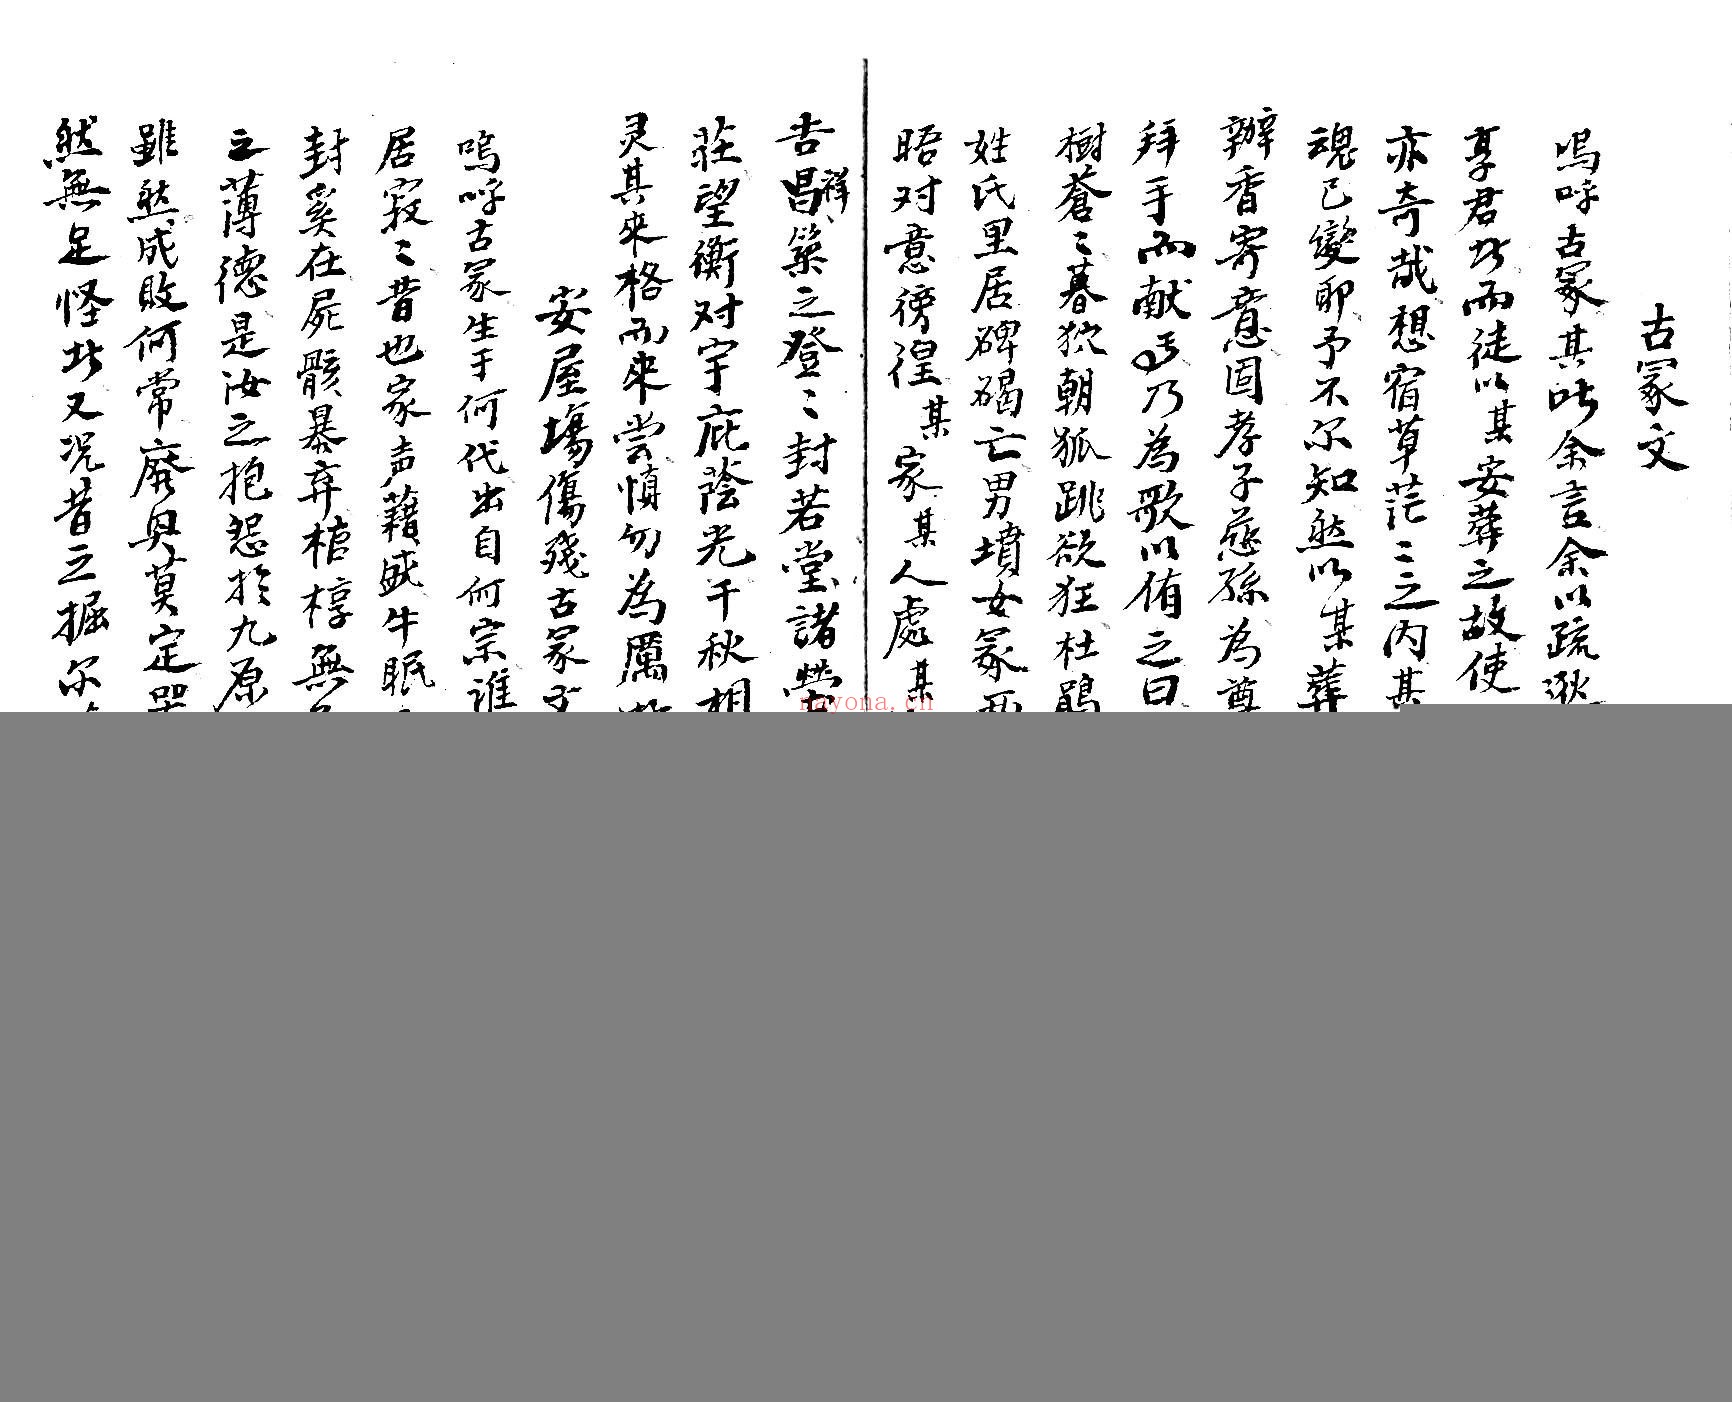 古冢文
嗚呼古冢其聴余言余以疏
享君此而徒以某安葬之故使
亦奇哉想宿草茫〻之内其
魂已變即予不尔知然以某葬
辦香寄意固孝子慈孫為尊
拜手而献焉乃為歌以侑之曰
樹蒼〻暮猿朝狐跳欲狂杜鵑
姓氏里居碑碣亡男墳女冢
晤对意徬徨某家某人處某
吉祥昌、築之登〻封若堂諸
莊望衡对宇庇蔭光千秋相
灵其來格而來尝慎勿為厲
安屋場傷殘古冢
嗚呼古冢生于何代出自何宗誰
居寂〻昔也家声藉盛牛眠
封奚在屍骸暴弃棺椁無
之薄德是汝之抱怨於九原
雖然成敗何常廢興莫定
然無足怪此又况昔之掘尔
nayona.cn